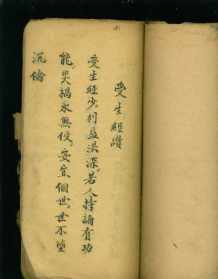 受生經讚
受生經少利益洪深若人持誦有功
能災禍永無侵安宜個世世不墮
沉倫